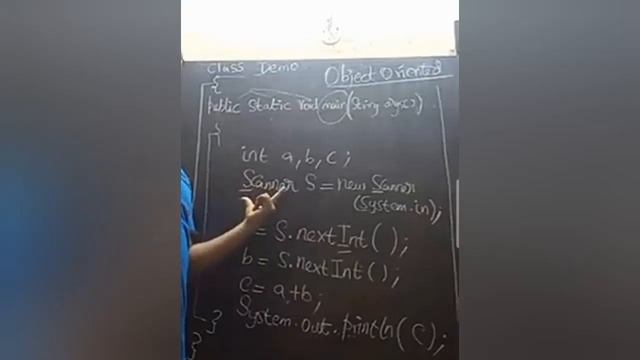 Class Demo
Object Oriented
{
public static void main(String args[])
{
int a,b,c;
Scanner S=new Scanner
(System.in);
= S.nextInt();
b= S.nextInt();
c= a+b;
System.out.println(C);
}
}